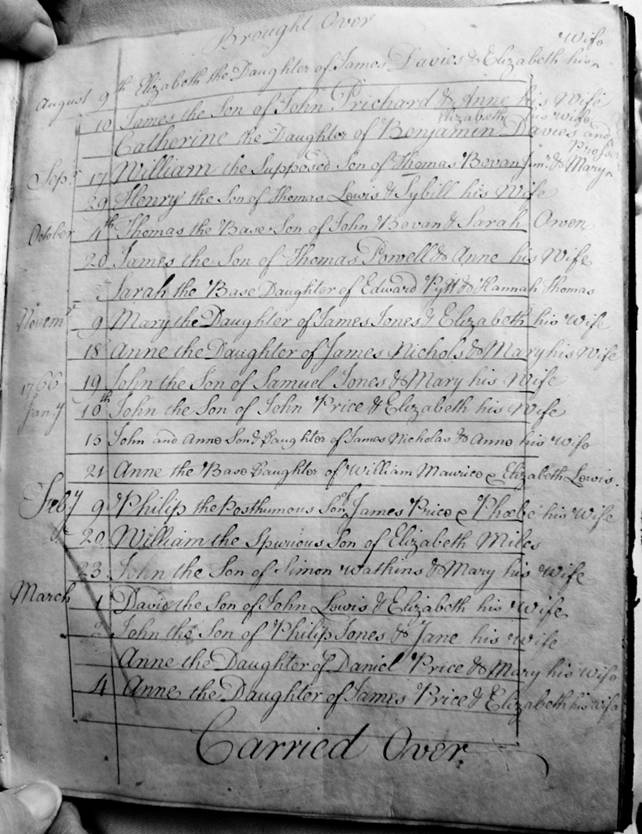 Brought Over
August 9th Elizabeth the Daughter of James Davies & Elizabeth his Wife
10 James the Son of John Prichard & Anne his Wife
Catherine the Daughter of Benjamin Davies and Elizabeth his Wife
Sepr 17 William the Supposed Son of Thomas Bevan Junr & Mary
29 Henry the Son of Thomas Lewis & Sybill his Wife
October 4th Thomas the Base Son of John Bevan & Sarah Owen
20 James the Son of Thomas Powell & Anne his Wife
Sarah the Base Daughter of Edward Pytt & Hannah Thomas
Novemr 9 Mary the Daughter of James Jones & Elizabeth his Wife
18 Anne the Daughter of James Nichols & Mary his Wife
19 John the Son of Samuel Jones & Mary his Wife
1766
Jany 10th John the Son of John Price & Elizabeth his Wife
15 John and Anne Son & Daughter of James Nicholas & Anne his Wife
21 Anne the Base Daughter of William Maurice & Elizabeth Lewis.
Feby 9 Philip the Posthumous Son of James Price & Phœbe his Wife
20 William the Spurious Son of Elizabeth Miles
23 John the Son of Simon Watkins & Mary his Wife
March 1 David the Son of John Lewis & Elizabeth his Wife
2 John the Son of Philip Jones & Jane his Wife
Anne the Daughter of Daniel Price & Mary his Wife
4 Anne the Daughter of James Price & Elizabeth his Wife
Carried Over